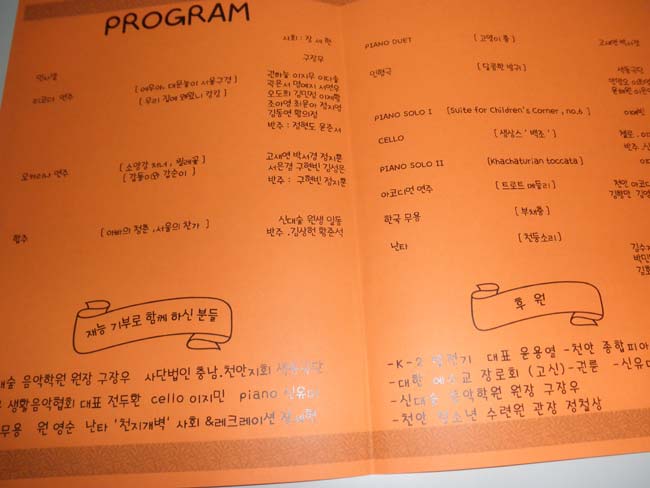 PROGRAM
사회 : 장 세 환
구장우
인사말
리코더 연주 [ 여우야, 대문놀이 서울구경 ] 권하늘 이지우 이다솔
[ 우리 집에 왜왔니 캉캉 ] 곽은서 명예지 서연우
오도희 김민정
조아영 최윤아 정지영
김동연 황의정
반주 : 정현도 윤준서
오카리나 연주 [ 소양강 처녀 , 찔레꽃 ] 고재연 박서경 정지훈
[ 갑돌이와 갑순이 ] 서은결 구현빈 김성은
반주 : 구현빈 정지훈
합주 [ 아빠의 청춘 , 서울의 찬가 ] 신대술 원생 일동
반주 . 김상현 황준석
재능 기부로 함께 하신 분들
음악학원 원장 구장우 사단법인 충남.천안지회
생활음악협회 대표 전두환 cello 이지민 piano 신유미
무용 원 영순 난타 '천지개벽' 사회 &레크레이션
PIANO DUET [ 고양이 춤 ] 고재연 박서경
인형극 [ 달콤한 방귀 ] 색동극단
PIANO SOLO I [Suite for Children's Corner , no.6 ] 이예빈
CELLO [ 생상스 ' 백조 ' ] 첼로 . 이
반주 . 신
PIANO SOLO II [Khachaturian toccata ]
아코디언 연주 [ 트로트 메들리 ] 천안 아코디
한국 무용 [ 부채춤 ]
난타 [ 천둥소리 ]
후 원
-K-2 대표 윤용열 -천안 종합피아
-대한 예수교 장로회 (고신)-권튼 -신유
-신대술 음악학원 원장 구장우
-천안 청소년 수련원 관장 정철상